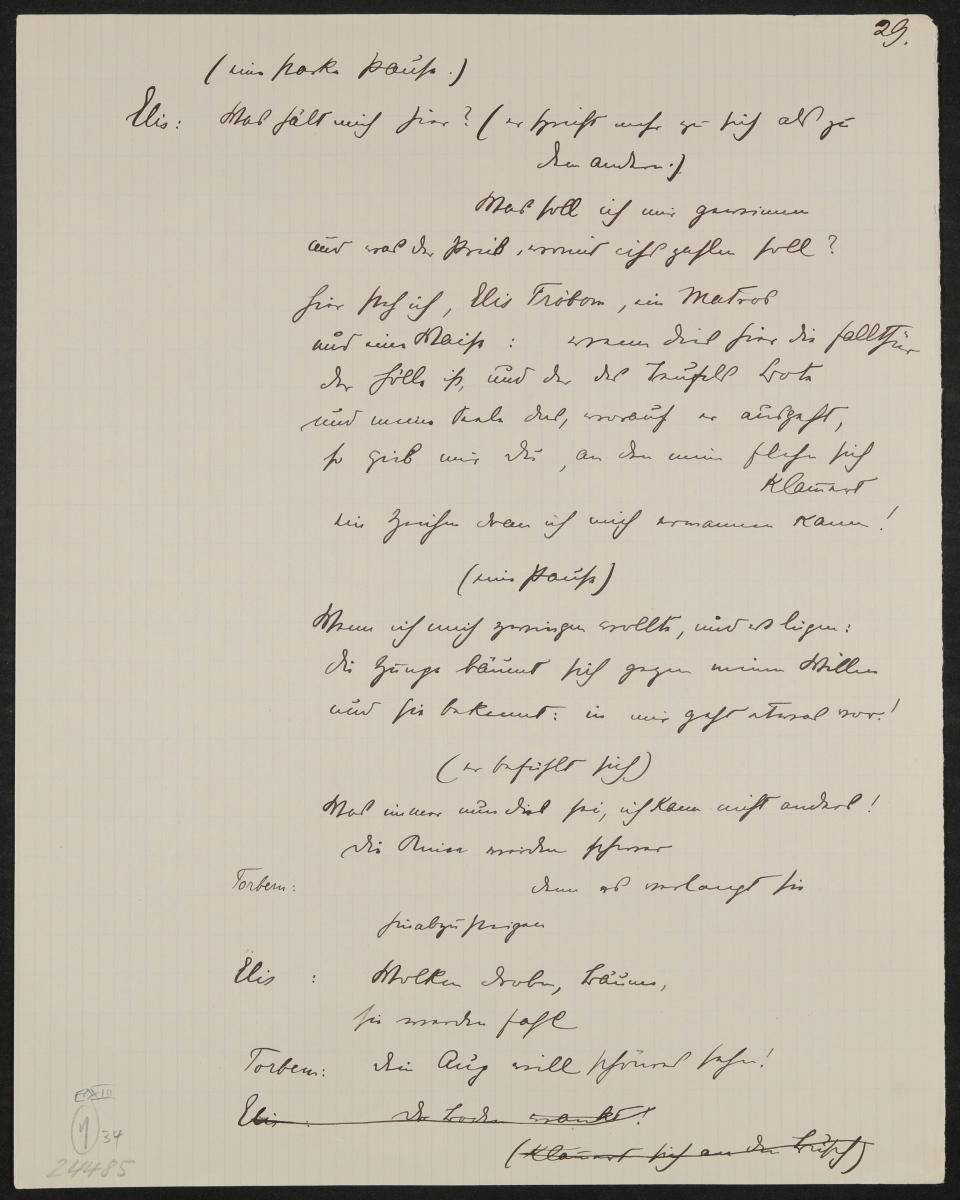 29.
(eine starke Pause.)
Elis: Was hält mich hier? (er spricht mehr zu sich als zu
dem andern.)
Was soll ich mir gewinnen
und was der Preis, womit ichs zahlen soll?
hier steh ich, Elis Fröbom, ein Matros
und eine Waise: wenn dies hier die Fallthür
der Hölle ist, und der des Teufels Bote
und meine Seele das, worauf er ausgeht,
so gieb mir du, an den mein Flehn sich
klammert
ein Zeichen dran ich mich ermannen kann!
(eine Pause)
Wenn ich mich zwingen wollte, und es lügen:
die Zunge bäumt sich gegen meinen Willen
und sie bekennt: in mir geht etwas vor!
(er befühlt sich)
Was immer nun dies sei, ich kann nicht anders!
die Kniee werden schwer
Torbern: denn es verlangt sie
hinabzusteigen
Elis: Wolken droben, Bäume,
sie werden fahl
Torbern: dein Aug will schönres sehn!
Elis: der Boden wankt!
(klammert sich an den Busch)
34
24485